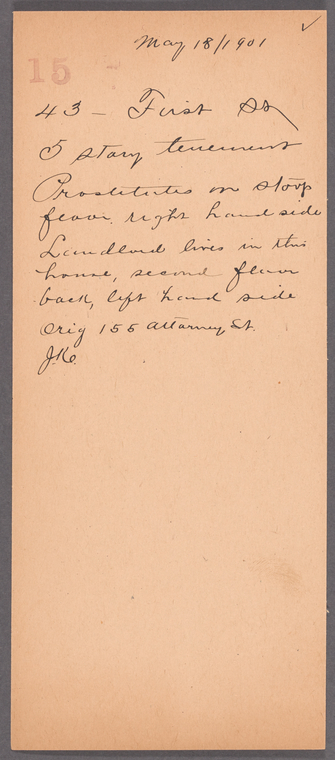 May 18/1901
15
43 – First St
5 story tenement
Prostitutes on stoop
floor. right hand side
Landlord lives in this
house, second floor
back, left hand side
Orig 155 Attorney St.
J.K.